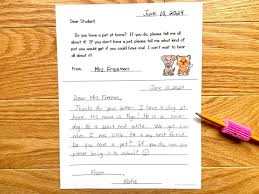 June 10, 2024
Dear Student,
Do you have a pet at home? If you do, please tell me all
about it! If you don't have a pet, please tell me what kind of
pet you would get if you could have one! I can't wait to hear
all about it!
From, Mrs. Freeman
June 10, 2024
Dear Mrs. Freeman,
Thanks for your letter. I have a dog at
home. His name is
small dog. He is black and white. We got him
when I was little. He is my best friend.
Do you have a pet? If you do can you
please bring it to school?
From,
Katie